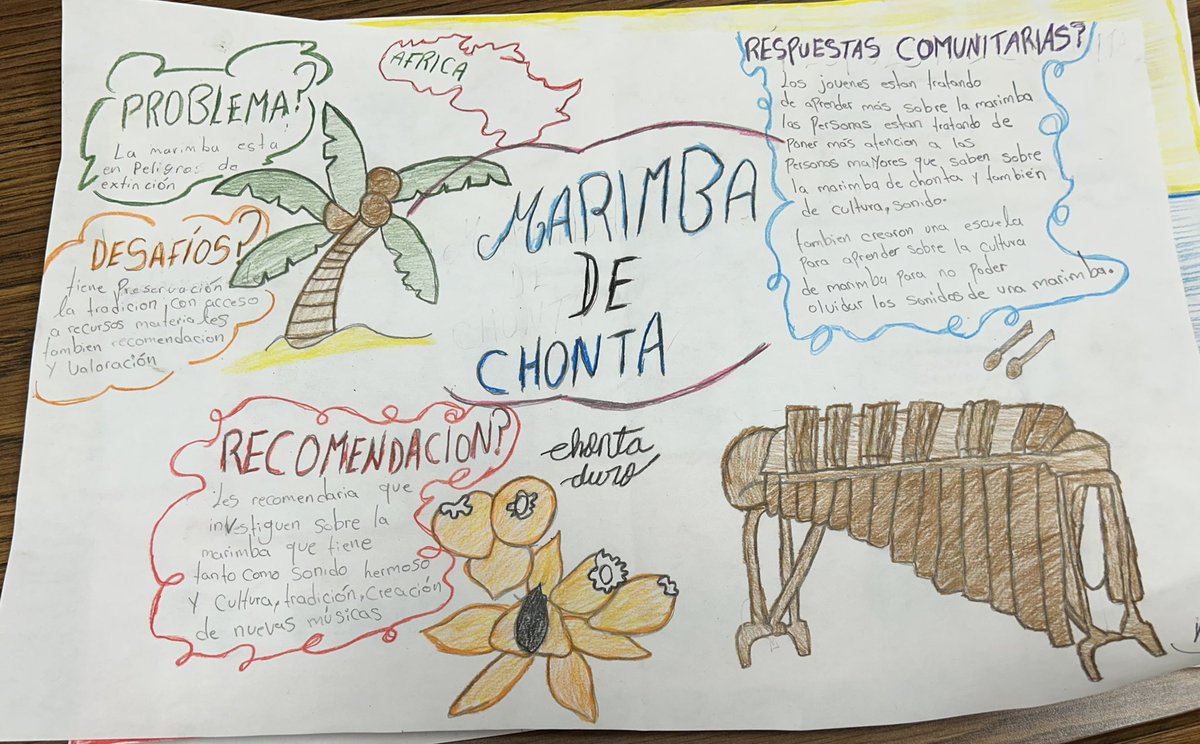 AFRICA
PROBLEMA?
La marimba esta
en Peligros de
extinción
DESAFÍOS?
tiene Preservación
la tradicion, con acceso
a recursos materiales
tambien recomendacion
y Valoración
MARIMBA
DE
CHONTA
RESPUESTAS COMUNITARIAS?
Los jovenes estan tratando
de aprender más sobre la marimba
las Personas estan tratando de
Poner más atencion a las
Personas mayores que, saben sobre
la marimba de chonta y también
de cultura, sonido.
tambien crearon una escuela
para aprender sobre la cultura
de marimba para no poder
olvidar los sonidos de una marimba.
RECOMENDACION?
Les recomendaria que
investiguen sobre la
marimba que tiene
tanto como sonido hermoso
y cultura, tradición, Creación
de nuevas músicas
chonta
duro